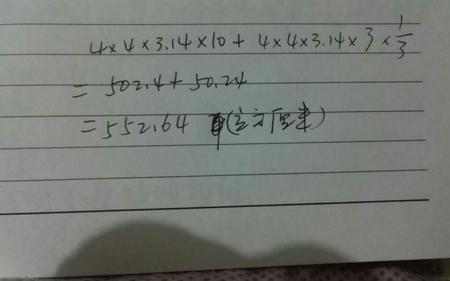 4×4×3.14×10+4×4×3.14×3×1/3
=502.4+50.24
=552.64 (立方厘米)